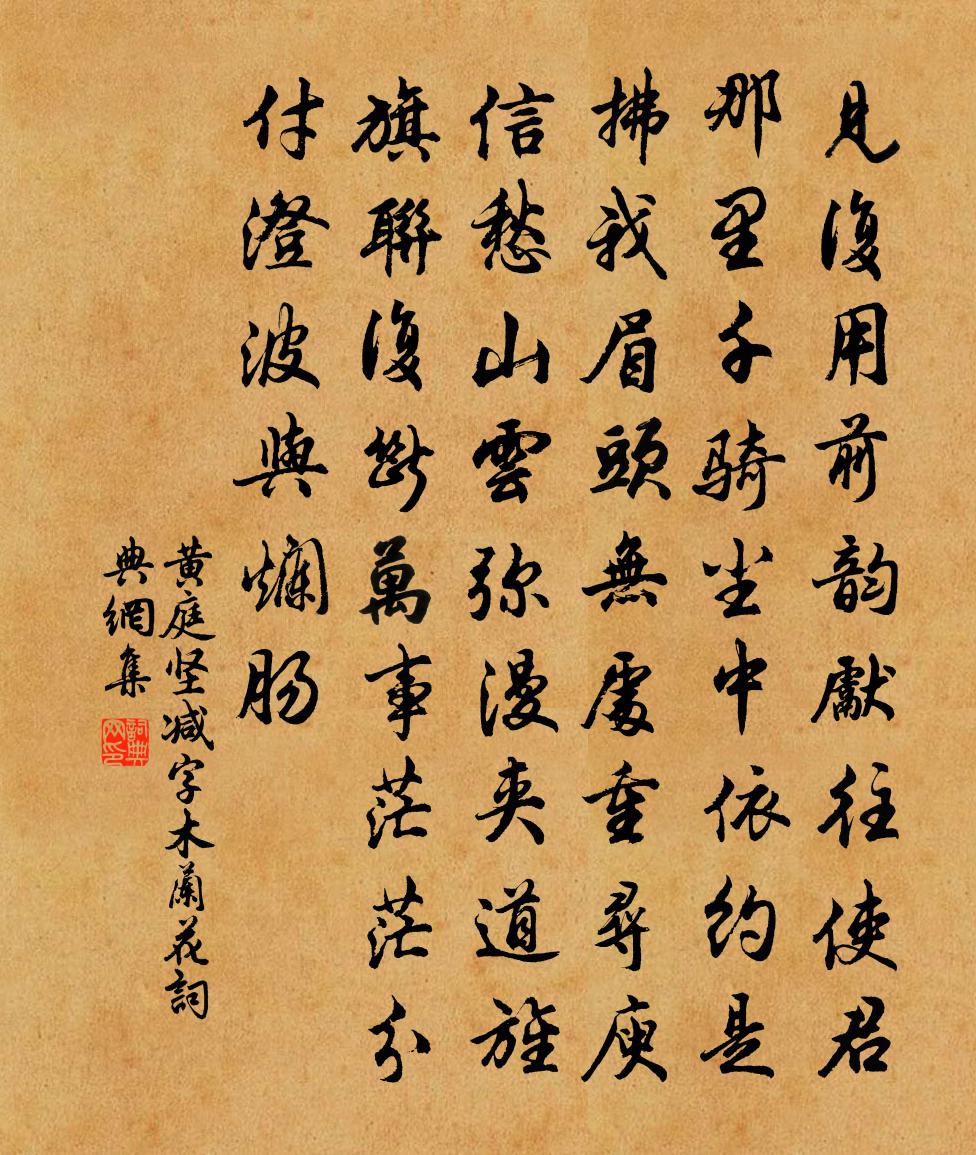 見復用前韵獻往使君
那里千骑尘中依約是
拂我眉頭無處重尋庾
信愁山雲弥漫夾道旌
旗聯復斷萬事茫茫分
付澄波與爛腸
黄庭坚减字木蘭花詞
典網集
詞典網印